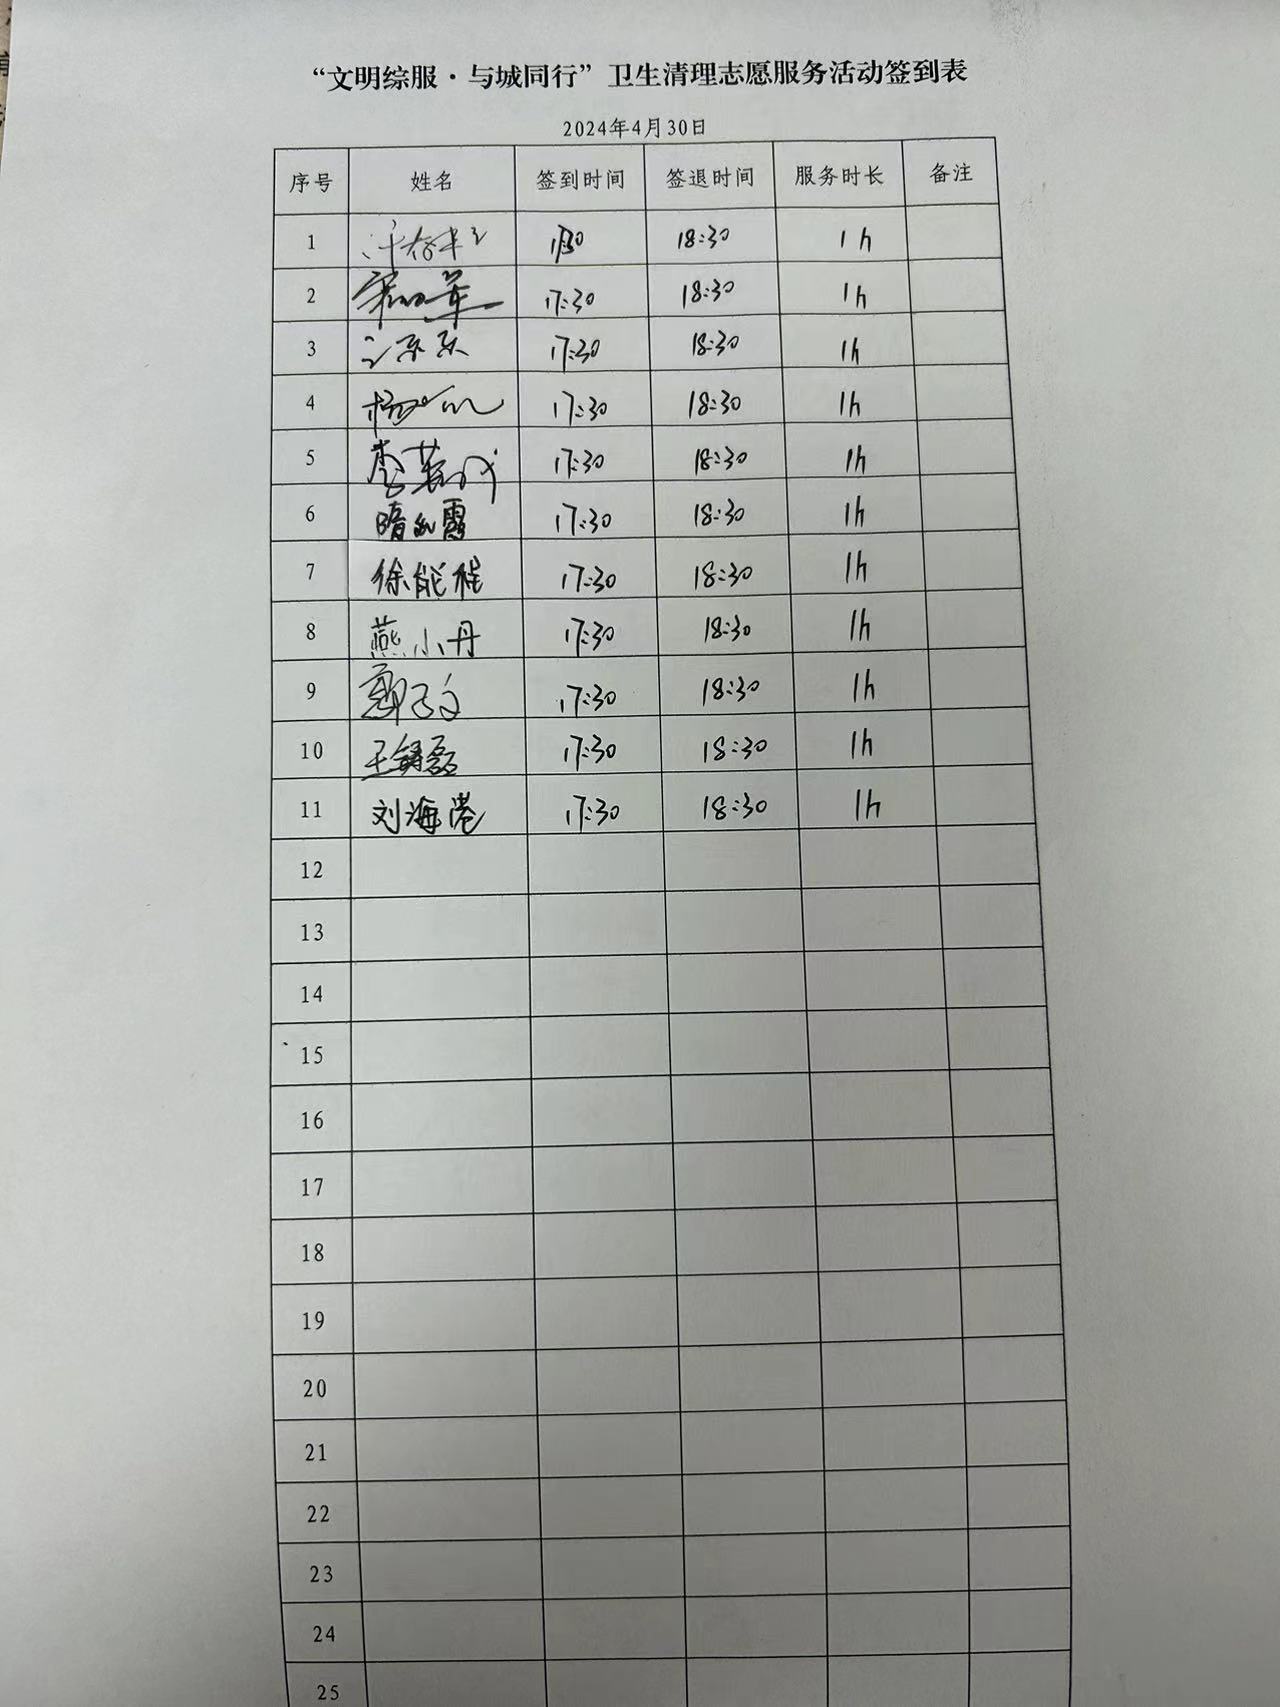 “文明综服·与城同行”卫生清理志愿服务活动签到表
2024年4月30日
序号 姓名 签到时间 签退时间 服务时长 备注
1 18:30 1h
2 17:30 18:30 1h
3 17:30 18:30 1h
4 17:30 18:30 1h
5 17:30 18:30 1h
6 17:30 18:30 1h
7 徐能程 17:30 18:30 1h
8 燕小丹 17:30 18:30 1h
9 17:30 18:30 1h
10 17:30 18:30 1h
11 刘海港 17:30 18:30 1h
12
13
14
15
16
17
18
19
20
21
22
23
24
25